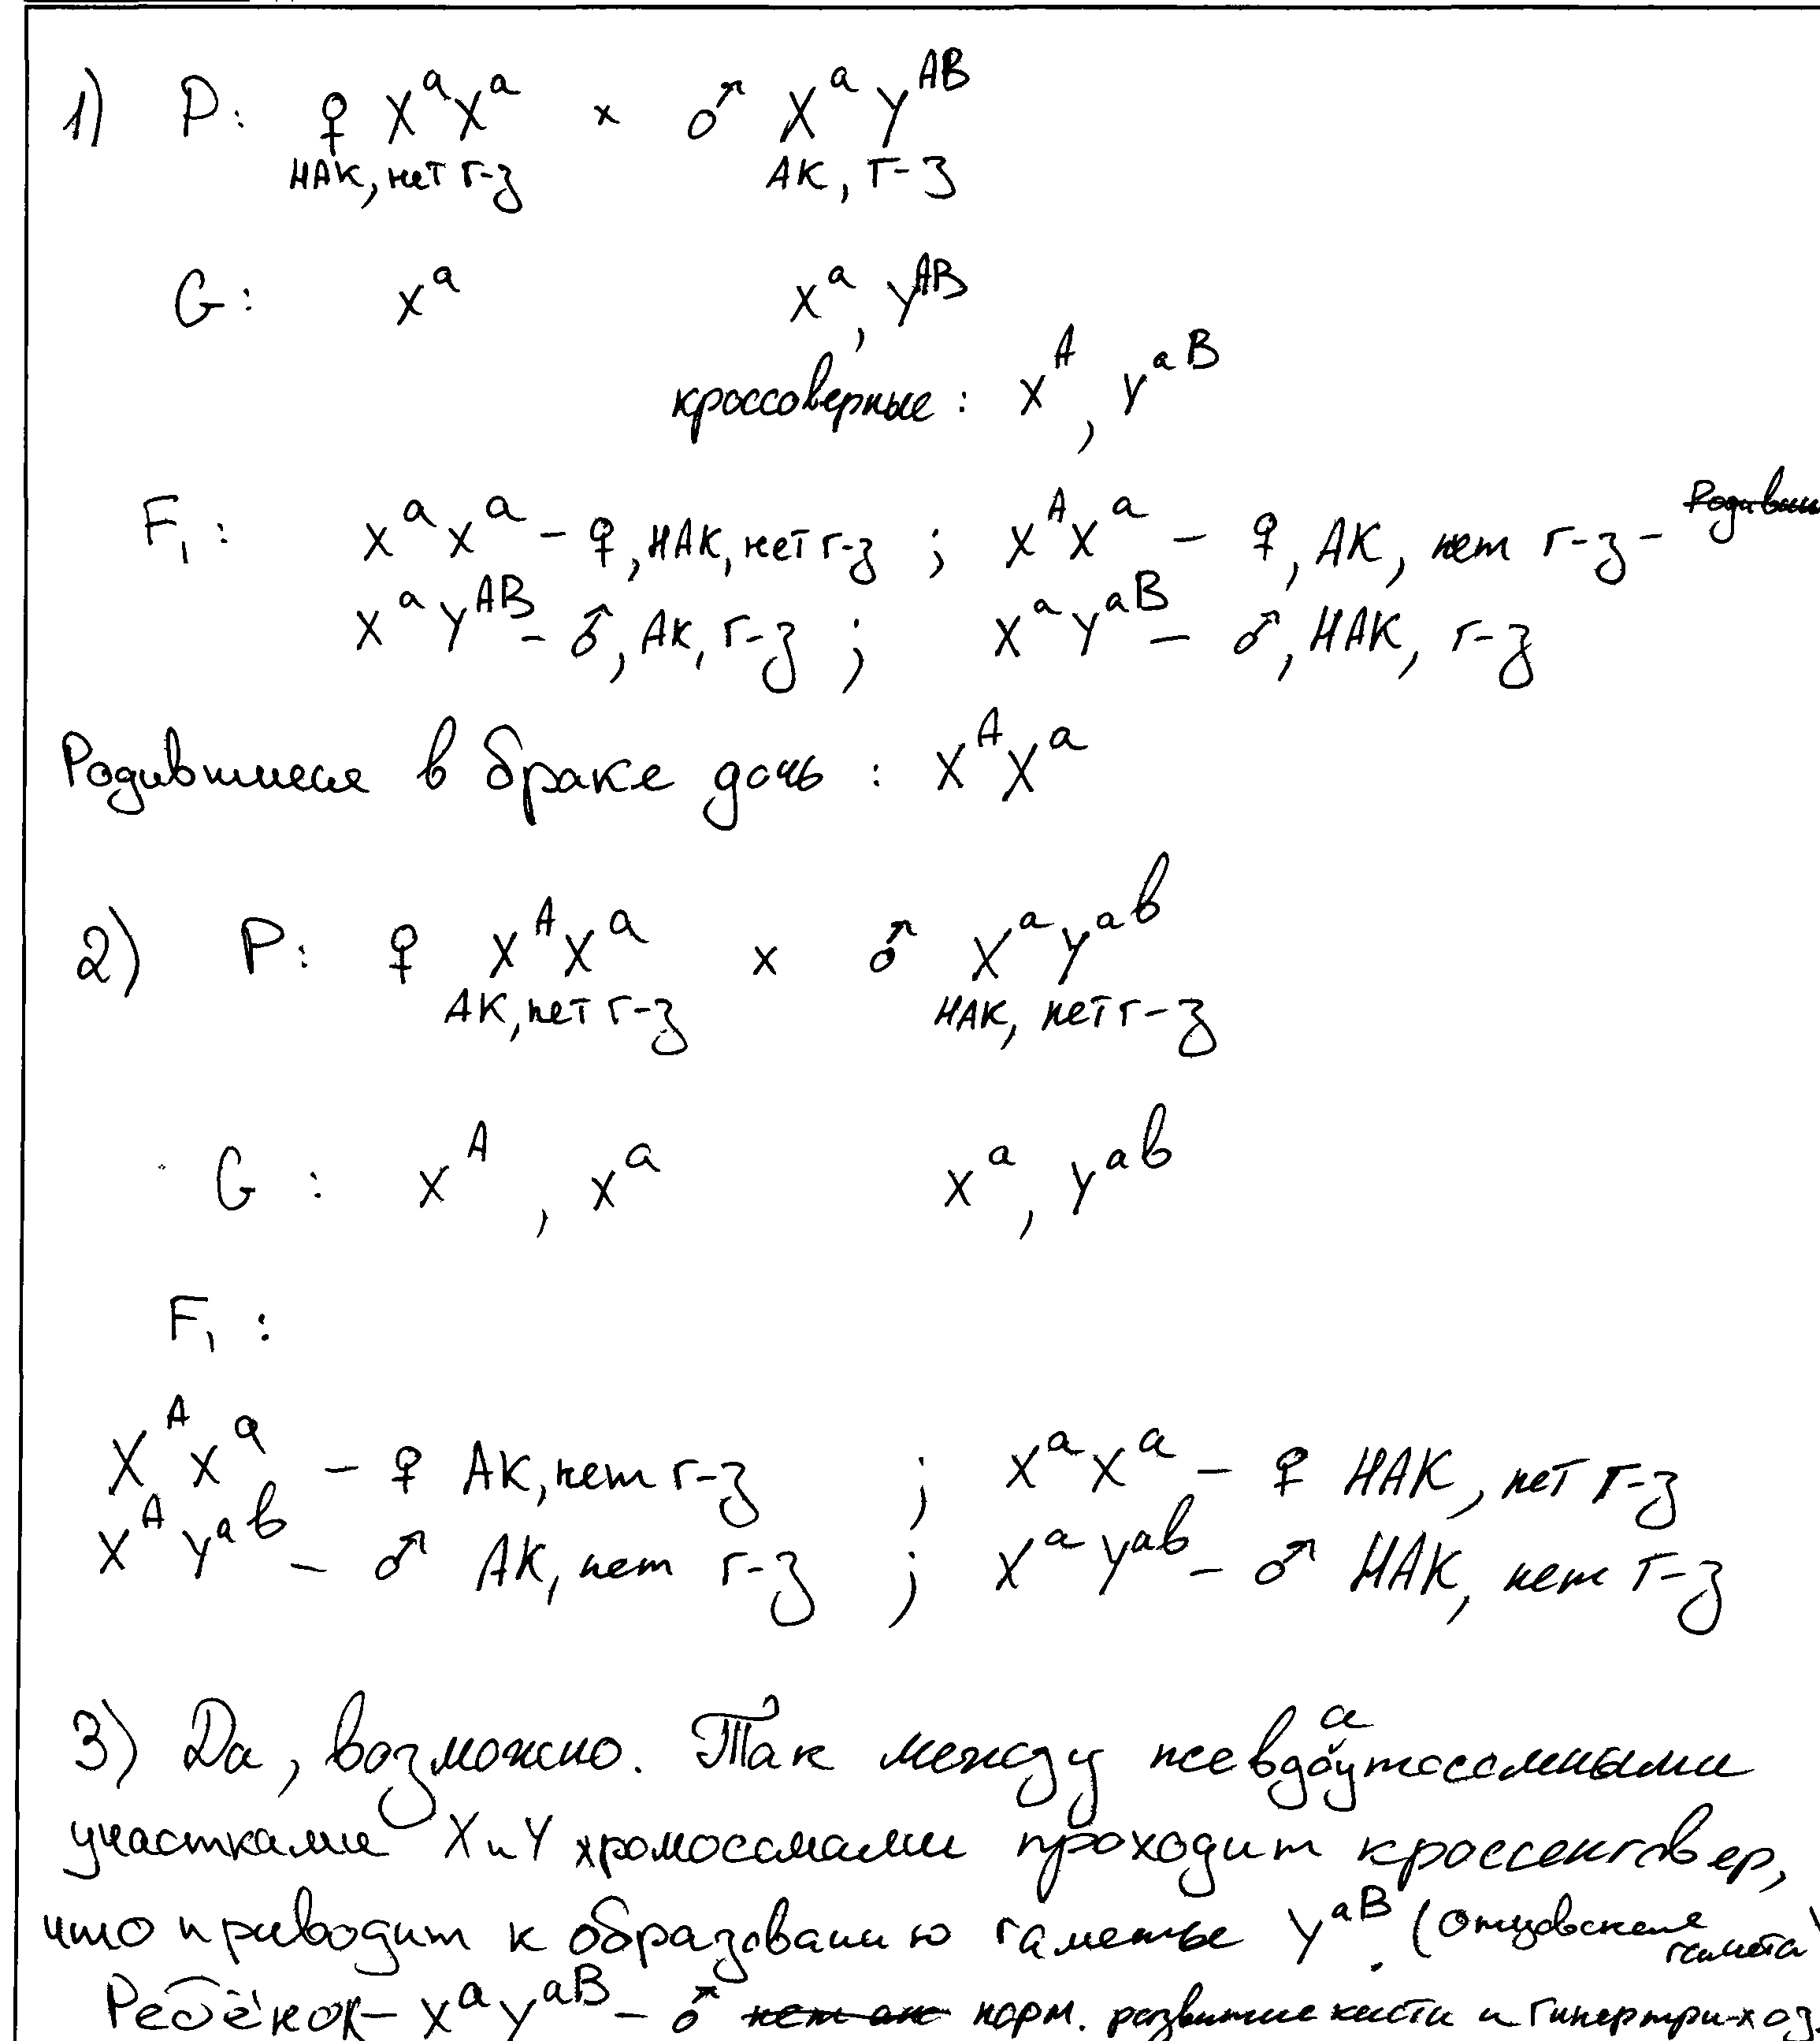 1) P: ♀ XᵃXᵃ × ♂ XᵃYᴬᴮ
НАК, нет г-з АК, г-з
G: Xᵃ Xᵃ, Yᴬᴮ
кроссоверные: Xᴬ, Yᵃᴮ
F₁: XᵃXᵃ - ♀, НАК, нет г-з ; XᴬXᵃ - ♀, АК, нет г-з -
XᵃYᴬᴮ - ♂, АК, г-з ; XᵃYᵃᴮ - ♂, НАК, г-з
Родившиеся в браке дочь : XᴬXᵃ
2) P: ♀ XᴬXᵃ × ♂ XᵃYᵃᵇ
АК, нет г-з НАК, нет г-з
G : Xᴬ, Xᵃ Xᵃ, Yᵃᵇ
F₁ :
XᴬXᵃ - ♀ АК, нет г-з ; XᵃXᵃ - ♀ НАК, нет г-з
XᴬYᵃᵇ - ♂ АК, нет г-з ; XᵃYᵃᵇ - ♂ НАК, нет г-з
3) Да, возможно. Так между псевдоаутосомными
участками X и Y хромосомами проходит кроссинговер,
что приводит к образованию гаметы Yᵃᴮ. (отцовская гамета)
Ребёнок - XᵃYᵃᴮ - ♂ норм. развитие кисти и гипертрихоз.